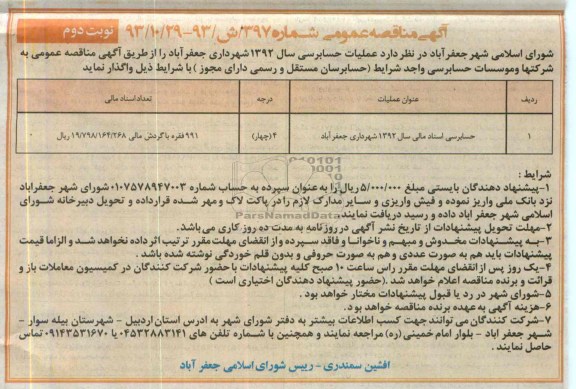 آگهی مناقصه عمومی شماره ۳۹۷/ش/۹۳-۹۳/۱۰/۲۹
نوبت دوم
شورای اسلامی شهر جعفرآباد در نظر دارد عملیات حسابرسی سال ۱۳۹۲ شهرداری جعفرآباد را از طریق آگهی مناقصه عمومی به
شرکتها وموسسات حسابرسی واجد شرایط (حسابرسان مستقل و رسمی دارای مجوز ) با شرایط ذیل واگذار نماید
ردیف عنوان عملیات درجه تعداد اسناد مالی
۱ حسابرسی اسناد مالی سال ۱۳۹۲ شهرداری جعفر آباد ۴(چهار) ۹۹۱ فقره با گردش مالی ۱۹/۷۹۸/۱۶۴/۲۶۸ ریال
شرایط :
۱-پیشنهاد دهندگان بایستی مبلغ ۵/۰۰۰/۰۰۰ ریال را به عنوان سپرده به حساب شماره ۰۱۰۷۵۷۸۹۴۷۰۰۳ شورای شهر جعفراباد
نزد بانک ملی واریز نموده و فیش واریزی و سایر مدارک لازم را در پاکت لاک و مهر شده قرارداده و تحویل دبیرخانه شورای
اسلامی شهر جعفر اباد داده و رسید دریافت نمایند.
ParsNamadData
۲-مهلت تحویل پیشنهادات از تاریخ نشر آگهی در روزنامه به مدت ده روز کاری می‌باشد.
۳-به پیشنهادات مخدوش و مبهم و ناخوانا و فاقد سپرده و از انقضای مهلت مقرر ترتیب اثر داده نخواهد شد و الزاما قیمت
پیشنهادات باید هم به صورت عددی و هم به صورت حروفی و بدون قلم خوردگی نوشته شده باشد .
۴-یک روز پس از انقضای مهلت مقرر راس ساعت ۱۰ صبح کلیه پیشنهادات با حضور شرکت کنندگان در کمیسیون معاملات باز و
قرائت و برنده مناقصه اعلام خواهد شد .(حضور پیشنهاد دهندگان اختیاری است )
۵-شورای شهر در رد یا قبول پیشنهادات مختار خواهد بود .
۶-هزینه آگهی به عهده برنده مناقصه خواهد بود.
۷-شرکت کنندگان می توانند جهت کسب اطلاعات بیشتر به دفتر شورای شهر به ادرس استان اردبیل - شهرستان بیله سوار -
شهر جعفر اباد - بلوار امام خمینی (ره) مراجعه نمایند و همچنین با شماره تلفن های ۰۴۵۳۲۸۸۳۱۴۱ یا ۰۹۱۴۳۵۳۱۶۷۰ تماس
حاصل نمایند .
افشین سمندری - رییس شورای اسلامی جعفر آباد